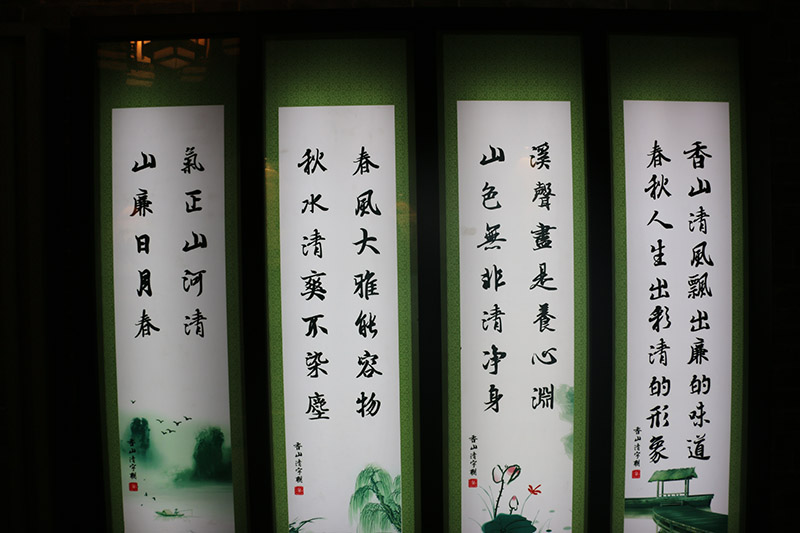 香山清風飄出廉的味道
春秋人生出彩清的形象
香山清字聯
溪聲盡是養心淵
山色無非清净身
香山清字聯
春風大雅能容物
秋水清爽不染塵
香山清字聯
氣正山河清
山廉日月春
香山清字聯